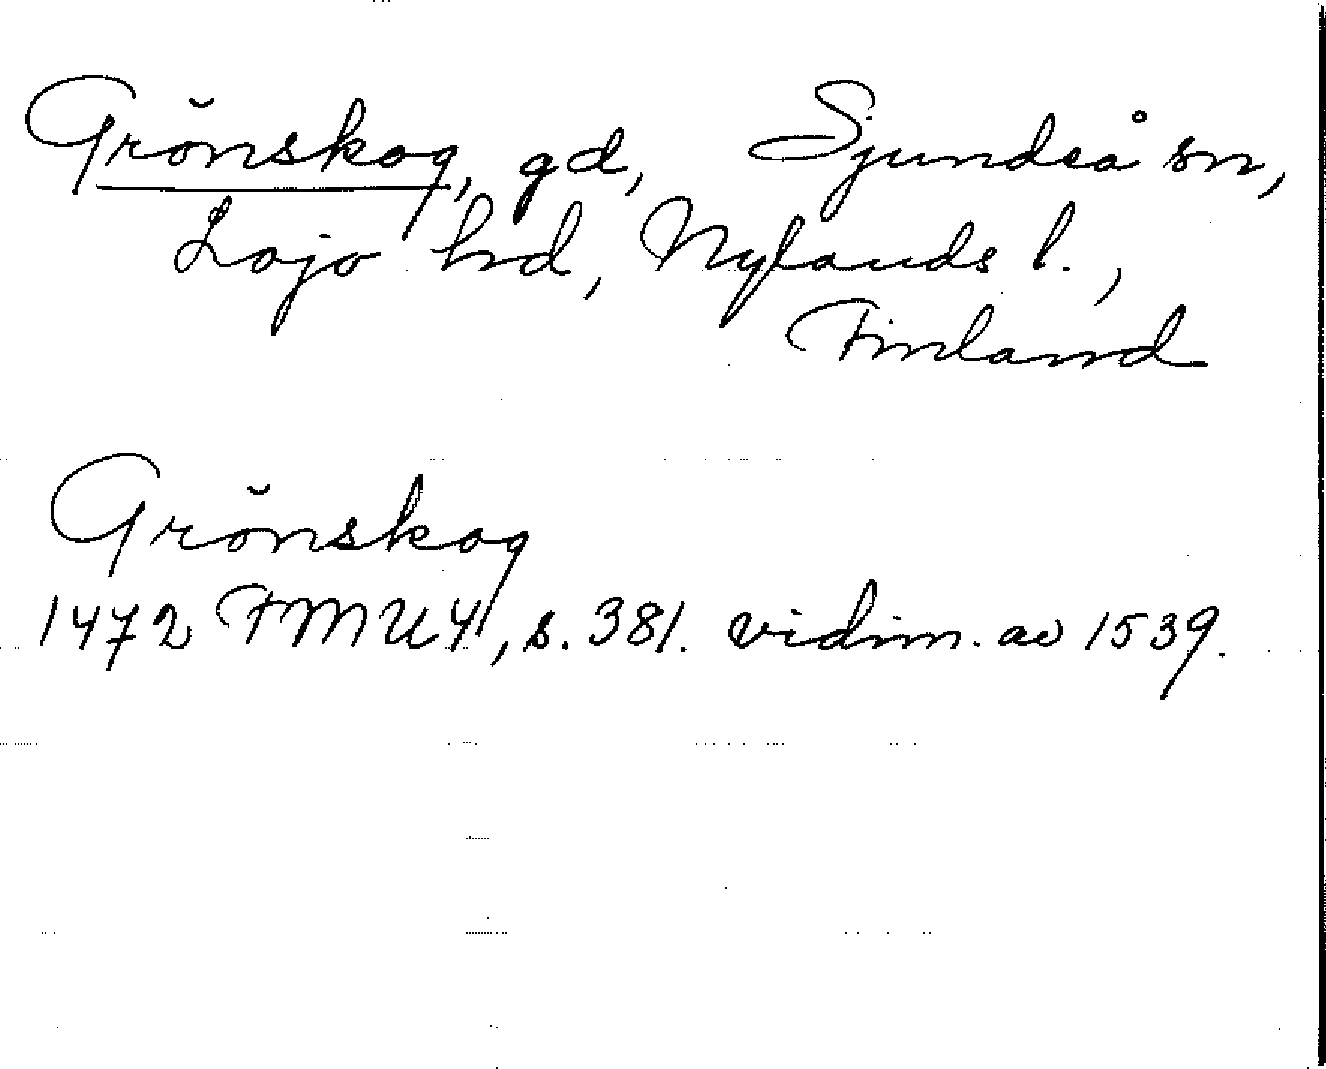 Grönskog, gd, Sjundeå sn,
Lojo hd, Nylands l.,
Finland
Grönskog
1472 FMU 4, s. 381. vidim. av 1539.